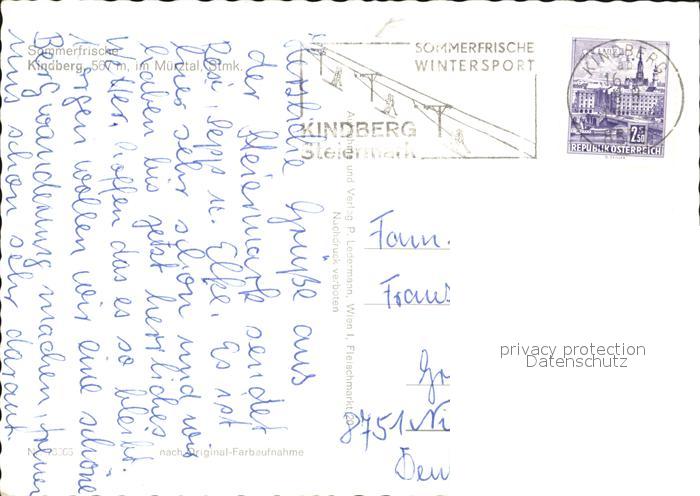 Sommerfrische
Kindberg, 567 m, im Mürztal, Stmk.
SOMMERFRISCHE
WINTERSPORT
KINDBERG
Steiermark
KINDBERG
WIEN
2.50
REPUBLIK ÖSTERREICH
Herzliche Grüße aus
der Steiermark sendet
Resi, Sepp u. Elke. Es ist
hier sehr schön und wir
haben bis jetzt herrliches
Wetter, hoffen das es so bleibt.
Morgen wollen wir eine schöne
Bergwanderung machen, freuen
uns schon sehr darauf.
und Verlag P. Ledermann, Wien I, Fleischmarkt 20
Nachdruck verboten
Fam.
Franz
8751 Ni
privacy protection
Datenschutz
nach Original-Farbaufnahme